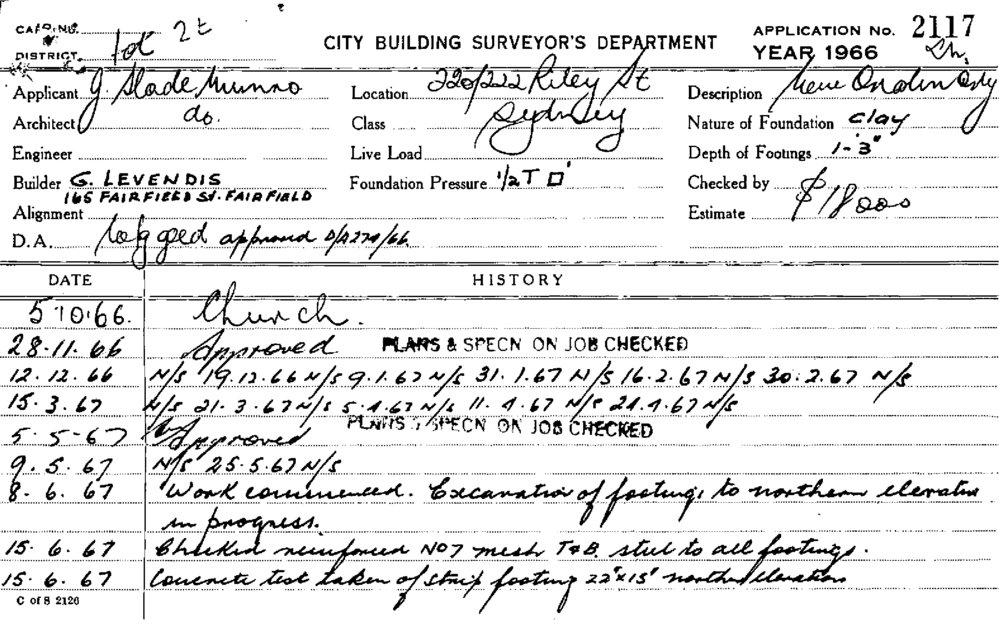 CARD No. 2t
DISTRICT
CITY BUILDING SURVEYOR'S DEPARTMENT
APPLICATION No. 2117
YEAR 1966
Applicant J. Slade Munro
Location 220/222 Riley St
Description New
Architect do.
Class
Sydney
Nature of Foundation clay
Engineer
Live Load
Depth of Footings 1-3"
Builder G. LEVENDIS
165 FAIRFIELD ST. FAIRFIELD
Foundation Pressure 1/2 T □'
Checked by
Alignment
Estimate $18000
D. A. approved D/A 274/66
DATE HISTORY
5 10.66. Church.
28.11.66 Approved PLANS & SPECN ON JOB CHECKED
12.12.66 N/S 19.12.66 N/S 9.1.67 N/S 31.1.67 N/S 16.2.67 N/S 30.2.67 N/S
15.3.67 N/S 21.3.67 N/S 5.4.67 N/S 11.4.67 N/S 24.4.67 N/S
5-5-67 Approved PLANS & SPECN ON JOB CHECKED
9.5.67 N/S 25.5.67 N/S
8.6.67 Work commenced. Excavation of footings to northern elevation
in progress.
15.6.67 Checked reinforced No 7 mesh T&B. steel to all footings.
15.6.67 Concrete test taken of strip footing 22"x15" northern elevation
C of S 2126